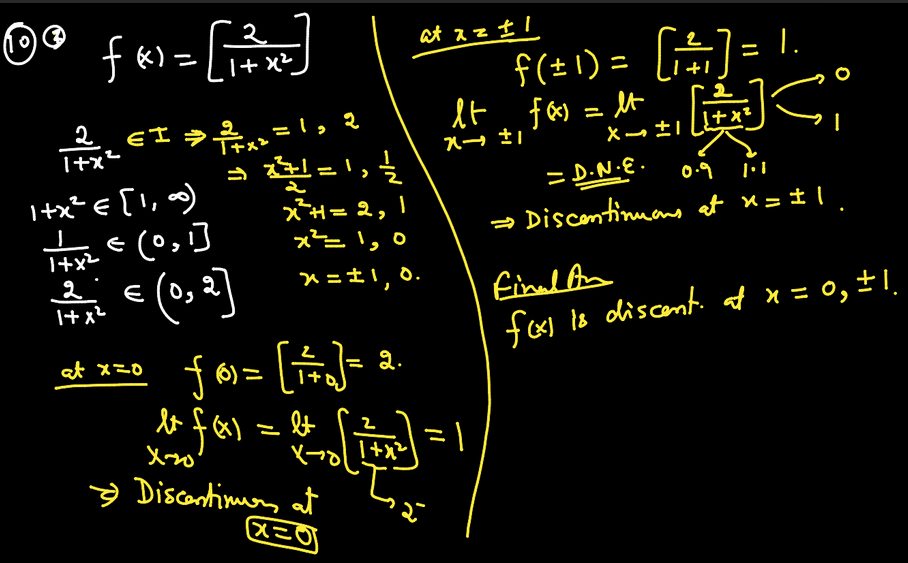 10 3
f(x) = [2/(1+x²)]
2/(1+x²) ∈ I ⇒ 2/(1+x²) = 1, 2
⇒ (x²+1)/2 = 1, 1/2
1+x² ∈ [1, ∞)
x²+1 = 2, 1
1/(1+x²) ∈ (0, 1]
x² = 1, 0
2/(1+x²) ∈ (0, 2]
x = ±1, 0.
at x=0 f(0) = [2/(1+0)] = 2.
lt x→0 f(x) = lt x→0 [2/(1+x²)] = 1
2⁻
⇒ Discontinuous at
x=0
at x = ±1
f(±1) = [2/(1+1)] = 1.
lt x→±1 f(x) = lt x→±1 [2/(1+x²)] → 0
→ 1
= D.N.E. 0.9 1.1
⇒ Discontinuous at x = ±1.
Final An
f(x) is discont. at x = 0, ±1.